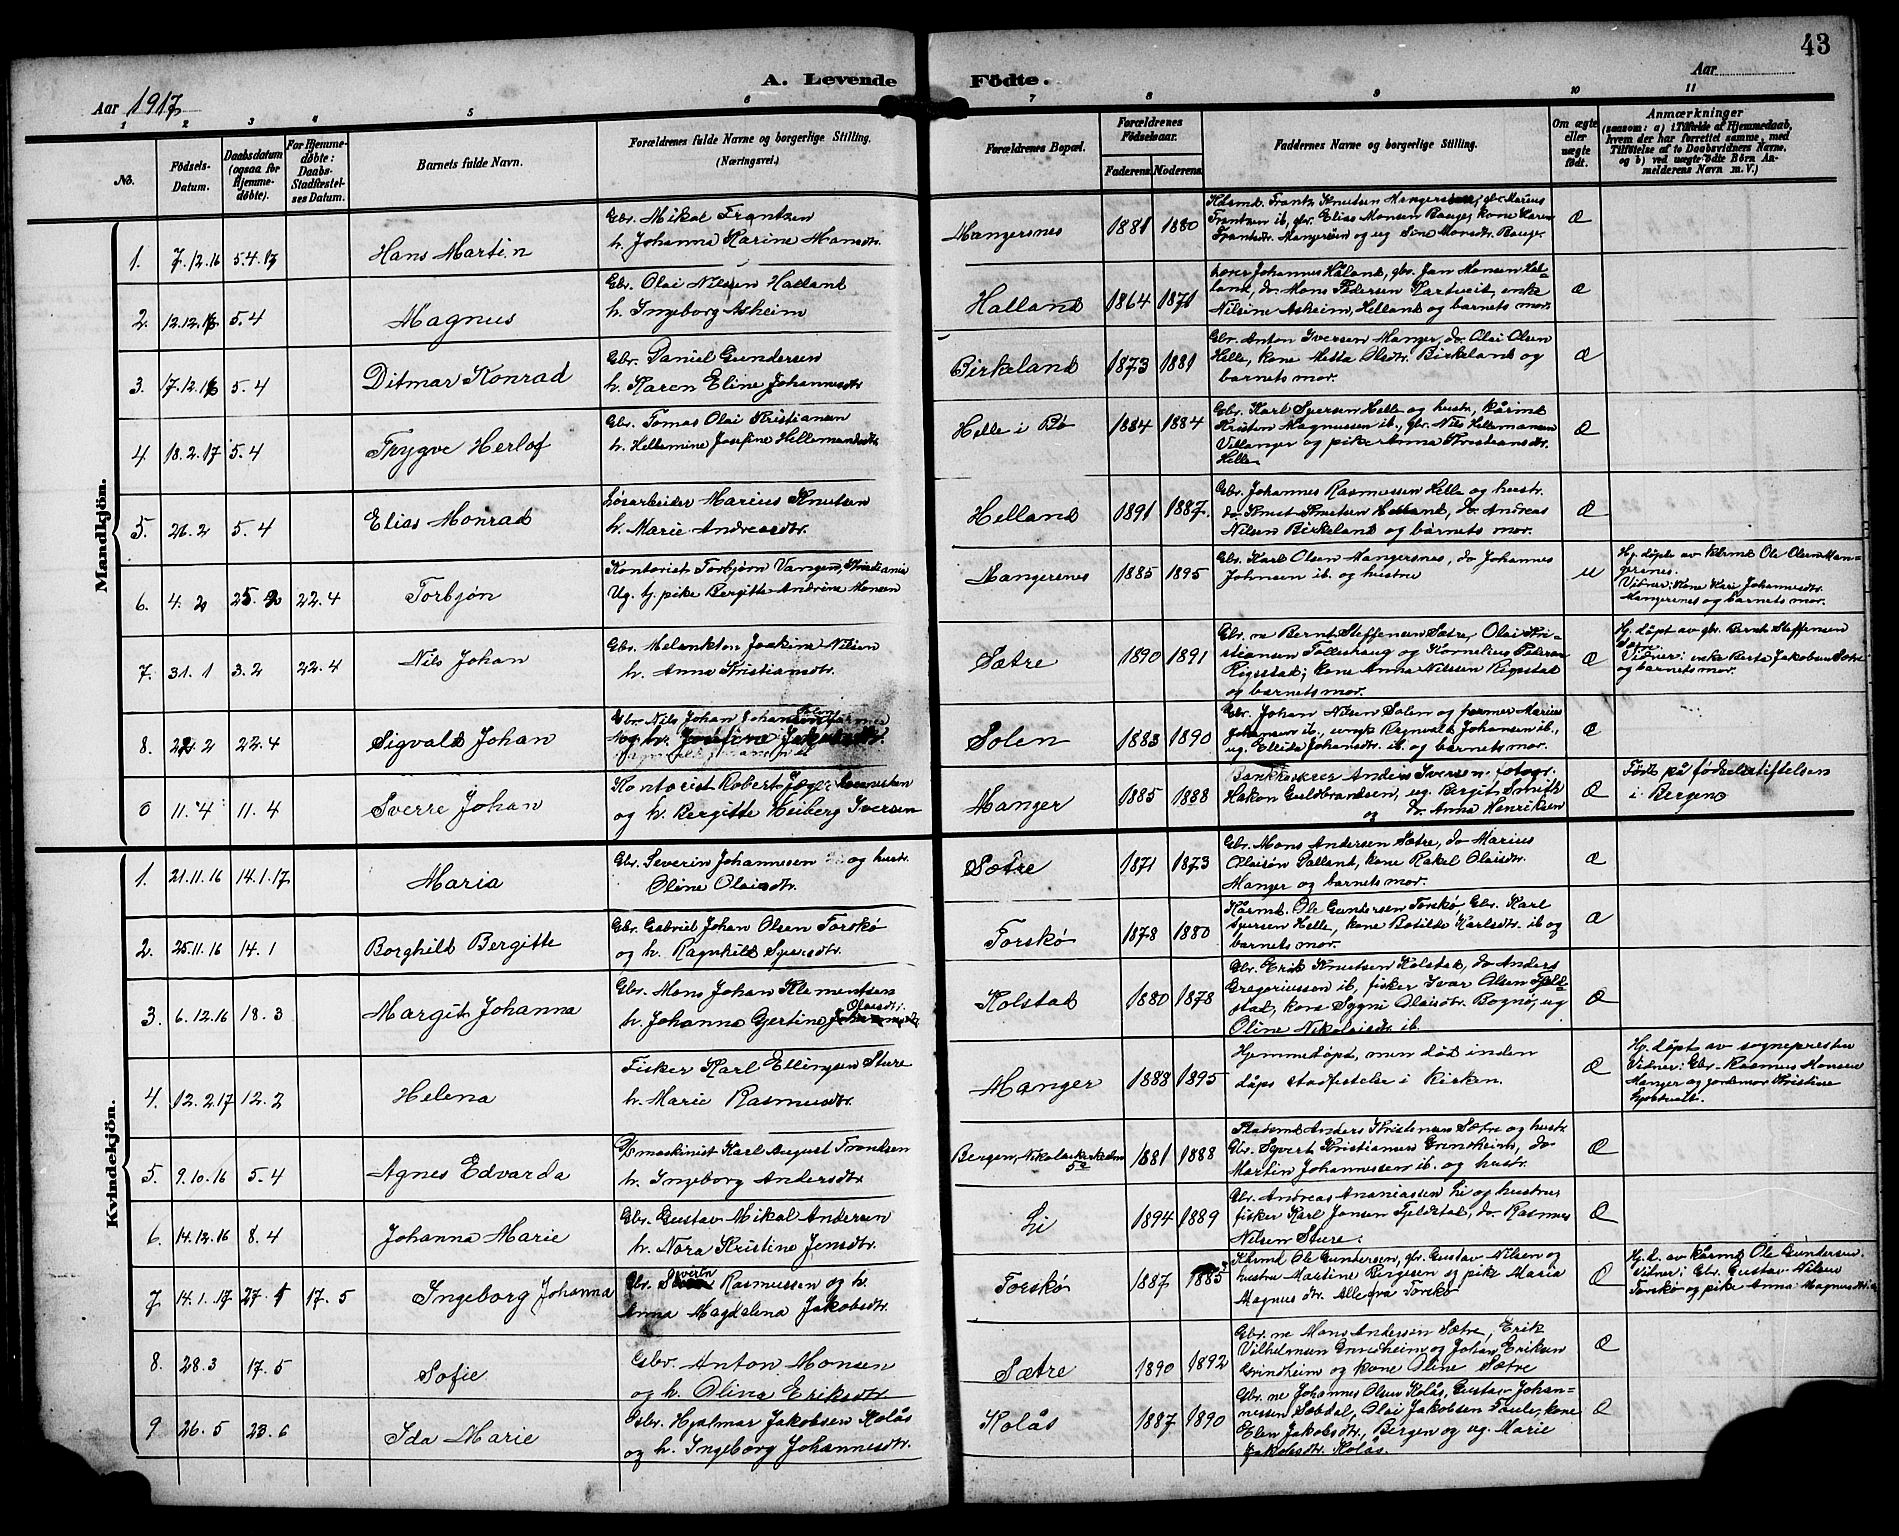 43
A. Levende Födte.
Aar 1917
Aar
1 2 3 4 5 6 7 8 9 10 11
No.
Födsels-
Datum.
Daabsdatum
(ogsaa for
Hjemme-
døbte).
For Hjemme-
døbte:
Daabs-
Stadfæstel-
ses Datum.
Barnets fulde Navn.
Forældrenes fulde Navne og borgerlige Stilling.
(Næringsvei.)
Forældrenes Bopæl.
Forældrenes
Födselsaar.
Faderens. Moderens.
Faddernes Navne og borgerlige Stilling.
Om ægte
eller
uægte
født.
Anmærkninger
(saasom: a) i Tilfælde af Hjemmedaab,
hvem der har forrettet samme, med
Tilføielse af to Daabsvidners Navne,
og b) ved uægte fødte Börn An-
melderens Navn m. V.)
Mandkjön.
1. 7.12.16 5.4.17 Hans Martin
Gbr. Mikal Frantzen
h. Johanna Karine Mansdtr.
Mangersnes 1881 1880
Frantzen ib, gbr. Elias Monsen Bauge, kone Karen
Æ
2. 12.12.16 5.4 Magnus
Gbr. Olai Nilsen Halland
h. Ingeborg Asheim
Halland 1864 1871
Nilsine Asheim, Helland og barnets mor.
Æ
3. 17.12.16 5.4 Ditmar Konrad
Gbr. Daniel Gundersen
h. Karen Eline Johannesdtr
Birkeland 1873 1881
Gbr. Anton Iversen Manger, do Olai Olsen
Helle, kone Metta Olsdtr. Birkeland og
barnets mor.
Æ
4 18.2.17 5.4 Trygve Herlof
Gbr. Tomas Olai Kristiansen
h. Hellemine Josefine Hellemandsdtr
Helle i Bø 1884 1884
Gbr. Karl Sjursen Helle og hustr, kårmd
Kristen Magnussen ib., gbr. Nils Hellemansen
Villanger og pike Anna Kristiansdtr.
Helle
Æ
5. 26.2 5.4 Elias Monrad
Løsarbeider Marius Knutsen
h. Marie Andreasdtr.
Helland 1891 1887.
Gbr. Johannes Rasmussen Helle og hustr.
do Knut Knutsen Helland, do. Andreas
Nilsen Birkeland og barnets mor.
Æ
6. 4.2 25.2 22.4 Torbjøn
Kontorist Torbjørn Vangen, Kristiania
Ug. tj. pike Bergitte Andrine Monsen
Mangersnes 1885 1895
Gbr. Karl Olsen Mangersnes, do Johannes
Johnsen ib. og hustru
U
Hj. døpt av kårmd Ole Olsen Man-
gersnes.
Vidner: Kone Kari Johannesdtr
Mangersnes og barnets mor.
7. 31.1 3.2 22.4 Nils Johan
Gbr. Melankton Joakim Nilsen
h. Anna Kristiansdtr.
Sætre 1890 1891
Gbr. ne Bernt Steffensen Sætre, Olai Kri-
stiansen Talleshaug og Kornelius Pedersen
Rigsstad; kone Anna Nilsen Rigsstad
og barnets mor.
Æ
Hj. døpt av gbr. Bernt Steffensen
Sætre.
Vidner: enke Berta Jakobsen Sætre
og barnets mor.
8. 22.2 22.4 Sigvald Johan
Gbr. Nils Johan Johansen Solen
Solen 1883 1890
Gbr. Johan Nilsen Solen og Marius
Johansen ib., ungk Ragnvald Johansen ib.,
ug. Ellida Johansdtr. ib. og barnets mor.
Æ
0 11.4 11.4 Sverre Johan
Kontorist Robert
og h. Bergitte Heiberg Iversen
Manger 1885 1888
Bankkasserer Anders Iversen, fotogr.
Hakon Guldbrandsen, ug. Bergit Smith
og do. Anna Henriksen
Æ
Født på fødselsstiftelsen
i Bergen
Kvindekjön.
1. 21.11.16 14.1.17 Maria
Gbr. Severin Johannesen og hustr.
Oline Olaisdtr.
Sætre 1871 1873
Gbr. Mons Andersen Sætre, do Marius
Olaisøn Halland, kone Rakel Olaisdtr.
Manger og barnets mor.
Æ
2. 25.11.16 14.1 Borghild Bergitte
Gbr. Gabriel Johan Olsen Torskø
og h. Ragnhild Sjursdtr.
Torskø 1878 1880
Kårmd. Ole Gundersen Torskø, Gbr. Karl
Sjursen Helle, kone Botilde Karlsdtr. ib og
barnets mor.
Æ
3. 6.12.16 18.3 Margit Johanna
Gbr. Mons Johan Klementsen
h. Johanna Gjertine Olaisdtr.
Kolstad 1880 1878
Gbr. Erik Knutsen Kolstad, do Anders
Gregoriussen ib, fisker Ivar Olsen Fjeld-
stad, kone Sygni Olaisdtr. Bognø, ug
Oline Nikolaisdtr ib.
Æ
4. 12.2.17 12.2 Helena
Fisker Karl Ellingsen Sture
h. Marie Rasmusdtr.
Manger 1888 1895
Hjemmedøpt, men død inden
dåps stadfestelse i kirken.
Æ
Hj. døpt av sognepresten
Vidner: Gbr. Rasmus Monsen
Manger og jordemor Kristine
5. 9.10.16 5.4 Agnes Edvarda
D/S maskinist Karl August Frandsen
h. Ingeborg Andersdtr.
Bergen, Nikolaikirkealm
5c
1881 1888
Anders Kristensen Sætre og hustr
Gbr. Sjvert Kristiansen Grindheim, do
Martin Johannessen ib. og hustr.
Æ
6. 14.12.16 8.4 Johanna Marie
Gbr. Gustav Mikal Andersen
h. Nora Kristine Jensdtr.
Li 1894 1889
Gbr. Andreas Ananiassen Li og hustru
fisker Karl Jansen Fjeldstad, do. Rasmus
Nilsen Sture.
Æ
7 14.1.17 27.1 17.5 Ingeborg Johanna
Gbr. Severin Rasmussen og h.
Anna Magdalena Jakobsdtr.
Torskø 1887 1885
Kårmd Ole Gundersen, gbr. Gustav Nilsen og
hustru Martine Birgesen og pike Maria
Magnus dtr. Alle fra Torskø
Æ
Hj. d. av kårmd Ole Gundersen.
Vidner: Gbr. Gustav Nilsen
Torskø og pike Anna Magnusdtr. ib
8. 28.3 17.5 Sofie
Gbr. Anton Monsen
og h. Olina Eriksdtr.
Sætre 1890 1892
Gbr. ne Mons Andersen Sætre, Erik
Vilhelmsen Grindheim og Johan Eriksen
Grindheim og kone Oline Sætre
Æ
9 26.5 23.6 Ida Marie
Gbr. Hjalmar Jakobsen Kolås
og h. Ingeborg Johannesdtr.
Kolås 1887 1890
Gbr. ne Johannes Olsen Kolås, Gustav Johan-
nessen Sæbdal, Olai Jakobsen Toule, kone
Elen Jakobsdtr, Bergen og ug. Marie
Jakobsdtr. Kolås.
Æ